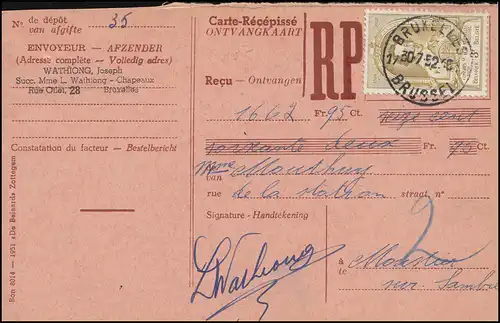 No de dépôt
van afgifte 35
ENVOYEUR - AFZENDER
(Adresse complète - Volledig adres)
WATHIONG, Joseph
Succ. Mme L. Wathiong - Chapeaux
Rue Otlet, 28 Bruxelles
Constatation du facteur - Bestelbericht
Bon 8014 - 1951 «De Beiaard» Zottegem
Carte-Récépissé
ONTVANGKAART
RP
BRUXELLES
30-7-52
BRUSSEL
Reçu - Ontvangen
1662 Fr. 95 Ct. cent
soixante deux Fr. 95 Ct.
Mme
van
rue de la station straat, no
Signature - Handtekening
L Wathiong
2
à
te Moustier
sur Sambre